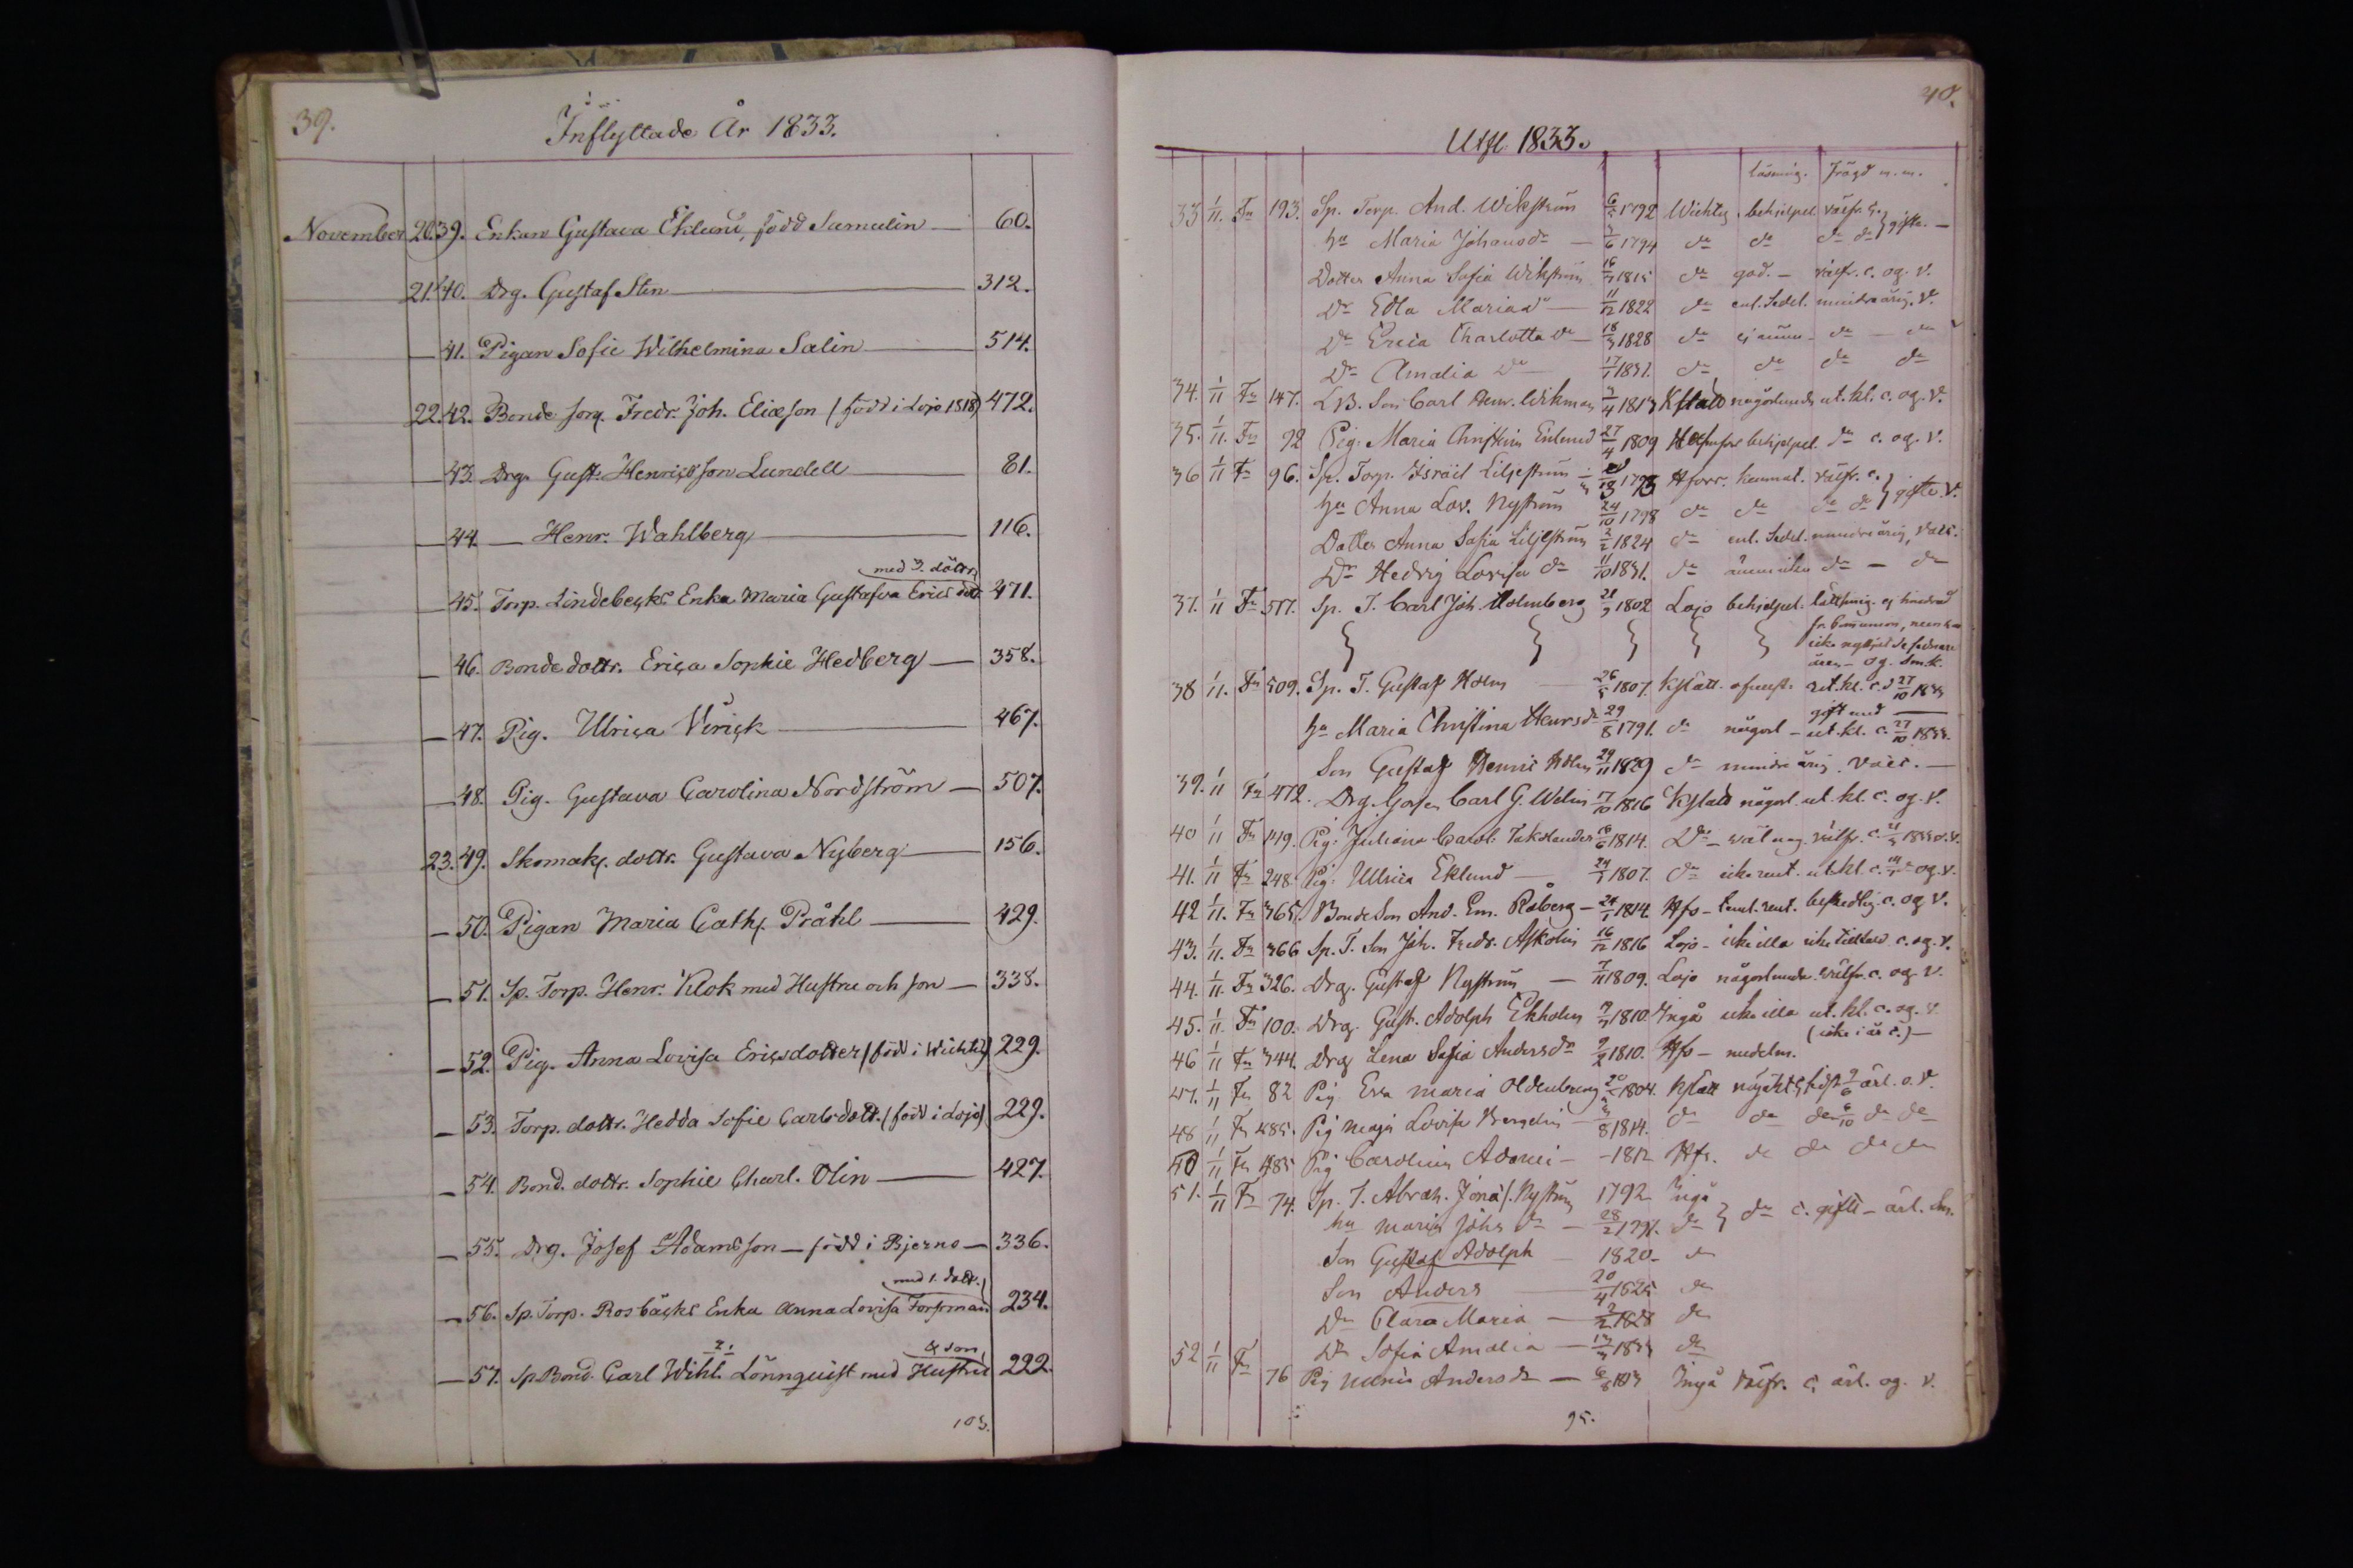 39.
Inflyttade År 1833.
November 20. 39. Enkan Gustava Eklund, född Sumelin — 60.
21. 40. Drg. Gustaf Sten — 312.
— 41. Pigan Sofie Wilhelmina Salin — 514.
22. 42. Bonde son Fredr. Joh. Eliæson (född i Lojo 1818) 472.
— 43. Drg. Gust. Henricsson Lundell — 81.
— 44. — Henr. Wahlberg — 116.
med 3. döttr.
— 45. Torp. Lindebecks Enka Maria Gustafva Erics dotr 471.
— 46. Bonde dottr. Erica Sophie Hedberg — 358.
— 47. Pig. Ulrica Virick — 467.
— 48. Pig. Gustava Carolina Nordström — 507.
23. 49. Skomak. dottr. Gustava Nyberg — 156.
— 50. Pigan Maria Cath. Pråhl — 429.
— 51. Sp. Torp. Henr. Klok med Hustru och son — 338.
— 52. Pig. Anna Lovisa Ericsdotter (född i Wichtis) 229.
— 53. Torp. dottr. Hedda Sofie Carlsdott. (född i Lojo) 229.
— 54. Bond. dottr. Sophie Charl. Olin — 427.
— 55. Drg. Josef Adamsson — född i Bjerno — 336.
med 1. dott.
— 56. Sp. Torp. Rosbäcks Enka Anna Lovisa Forsman 234.
& son
— 57. Sp. Bond. Carl Wihl. Lönnquist med Hustru 222.
103.
40.
Utfl. 1833.
läsning. Frägd m. m.
33 1/11. Fn 193. Sp. Torp. And. Wikström 6/5 1792 Wichtis behjelpel. välfr. c.
hu Maria Johansdr — 3/6 1794 do do do do gifte. —
Dotter Anna Sofia Wikström 16/7 1815 do god. — välfr. c. og. v.
Dr Edla Maria do — 11/12 1822 do enl. Sedel. minderårig. v.
Dr Erica Charlotta do — 18/3 1828 do ej ännu — do — do
Dr Amalia do — 17/1 1831. do do do do
34. 1/11 Fn 147. LB. Son Carl Henr. Wikman 3/4 1813 Kslätt någorlunda ut. kl. c. og. v.
35. 1/11. Fn 92 Pig. Maria Christina Enlund 27/4 1809 Helsinfors behjelpel. do c. og. v.
36 1/11 Fn 96. Sp. Torp. Israël Liljeström 1793 Hfors. hemmat. välfr. c.
hu Anna Lov. Nyström 24/10 1798 do do do do gifte. v.
Dotter Anna Sofia Liljeström 2/2 1824 do enl. Sedel. minderårig, vacc.
Dr Hedvig Lovisa do 11/10 1831. do do — do
37. 1/11 Fn 517. Sp. T. Carl Joh. Holmberg 21/3 1802 Lojo behjelpel. lättsinnig. ej hindrad
fr. Communion, men har
icke nyttjat de sednare
åren — og. Sm. k.
38 1/11. Fn 509. Sp. T. Gustaf Holm — 26/5 1807. Kslätt. ofverst. ut. kl. c. d. 27/10 1833
gift med
hu Maria Christina Henrsdr 29/8 1791. do någorl — ut. kl. c. 27/10 1833.
Son Gustaf Henric Holm 29/11 1829 do minderårig. vacc. —
39. 1/11 Fn 472. Drg. Gossen Carl G. Welin 17/10 1816 Kslätt någorl. ut. kl. c. og. v.
40 1/11 Fn 119. Pig. Juliana Carol. Takolander 16/6 1814. Do — väl nog välfr. c. 21/4 1833 o. v.
41. 1/11 Fn 248 Pig. Ullrica Eklund — 24/1 1807. do icke rent. ut. kl. c. og. v.
42 1/11. Fn 365. Bonde Son And. Em. Råberg — 24/1 1814. Hfs — temml. rent. beskedlig c. og v.
43. 1/11. Fn 366 Sp. T. Son Joh. Fredr. Askolin 16/12 1816 Lojo — icke illa icke tilltald c. og. v.
44. 1/11. Fn 326. Drg. Gustaf Nyström — 7/11 1809. Lojo någorlunda välfr. c. og. v.
45. 1/11. Fn 100. Drg. Gust. Adolph Ekholm 1810 Ingå icke illa ut. kl. c. og. v.
(icke i år c.) —
46 1/11 Fn 344. Drg Lena Sofia Andersdr 9/2 1810. Hfs — medelm.
47. 1/11 Fn 82 Pig Eva Maria Oldenburg 1804. Kslätt nöjaktl. sist 9/6 ärl. o. v.
48 1/11 Fn 485. Pig Maja Lovisa Bergelin — 8 1814. do do do 6/10 do do
50 1/11 Fn 485 Pig Carolina Adami — 1812 Hfs. do do do do
51. 1/11 Fn 74. Sp. T. Abrah. Jonæs. Nyström 1792 Ingå
hu Maria Johs dr — 28/2 1791. do do c. gifte — ärl. do.
Son Gustaf Adolph — 1820. do
Son Anders — 20/4 1825 do
Dr Clara Maria — 2/12 1828 do
Dr Sofia Amalia — 1833 do
52 1/11 Fn 76 Pig Maria Andersdr — 6/8 1813 Ingå välfr. c. ärl. og. v.
95.